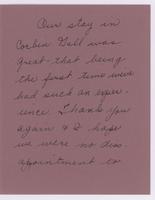 Our stay in
Corbin Hall was
great - that being
the first time we've
had such an exper-
ience. Thank you
again & I hope
we were no dis-
appointment to